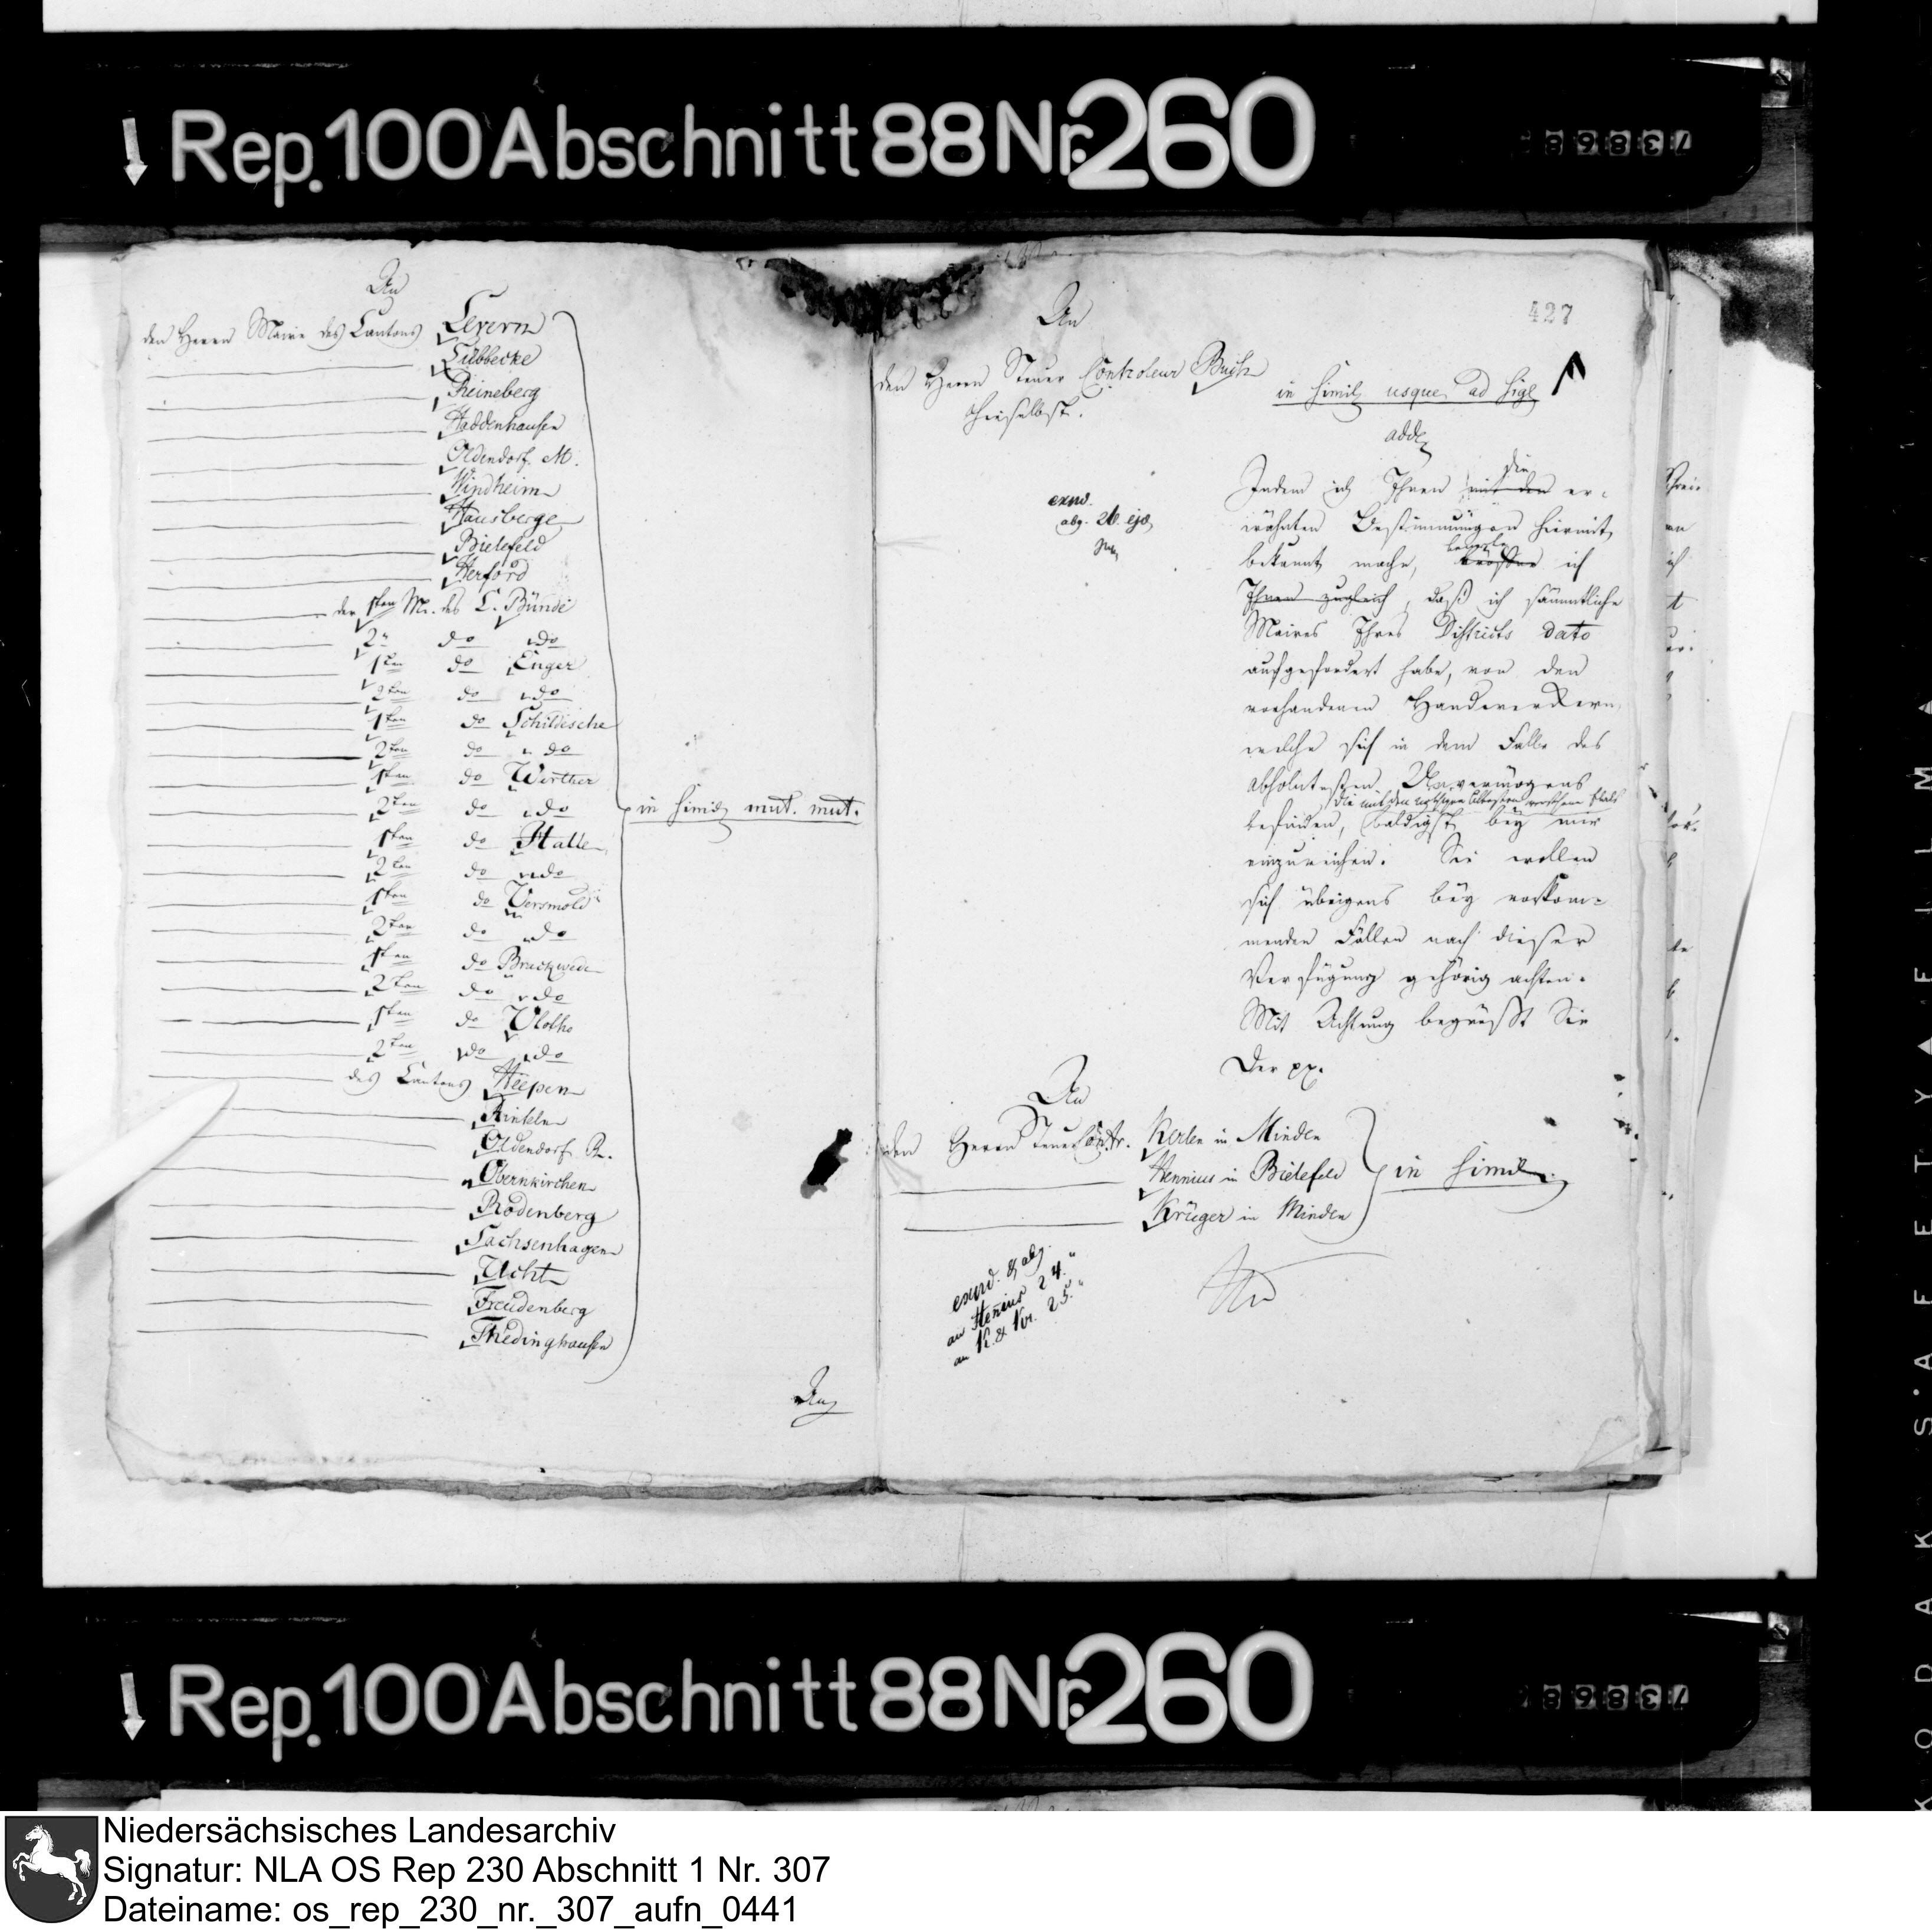 Rep. 100 Abschnitt 88 Nr. 260
73868
An
den Herrn Maire des Cantons Levern
Lübbecke
Reineberg
Haddenhausen
Oldendorf. M.
Windheim
Hausberge
Bielefeld
Herford
der 1sten M. des C. Bünde
2n do do
1sten do Enger
2ten do do
1sten do Schildesche
2ten do do
1sten do Werther
2ten do do
1sten do Halle
2ten do do
1sten do Versmold
2ten do do
1sten do Brackwede
2ten do do
1sten do Vlotho
2ten do do
des Cantons Heepen
Rinteln
Oldendorf R.
Obernkirchen
Rodenberg
Sachsenhagen
Uchte
Freudenberg
Thedinghausen
in simili mut. mut.
An
427
An
den Herrn Steuer Controleur Bush
hieselbst.
in simili usque ad sigl
adde
exped.
abg. 26. ejd.
Indem ich Ihnen mit den die er-
wähnten Bestimmungen hiermit
bekannt mache, bemerke ich
Ihnen zugleich, daß ich sämmtliche
Maires Ihres Districts dato
aufgefordert habe, von den
vorhandenen Handwerckern,
welche sich in dem Falle des
absolutesten Unvermögens
die mit den nöthigen Attesten versehene Etats
befinden, baldigst bey mir
einzureichen. Sie wollen
sich übrigens bey vorkom-
menden Fällen nach dieser
Verfügung gehörig achten.
Mit Achtung begrüßt Sie
Der pp.
An
den Herrn Steuer Contr. Kerlen in Minden
Hennius in Bielefeld
Krüger in Minden
in simili
exped. & abg.
an Henius 24."
an K. & Kr. 25."
Rep. 100 Abschnitt 88 Nr. 260
73868
KODAK SAFETY FILM
Niedersächsisches Landesarchiv
Signatur: NLA OS Rep 230 Abschnitt 1 Nr. 307
Dateiname: os_rep_230_nr._307_aufn_0441